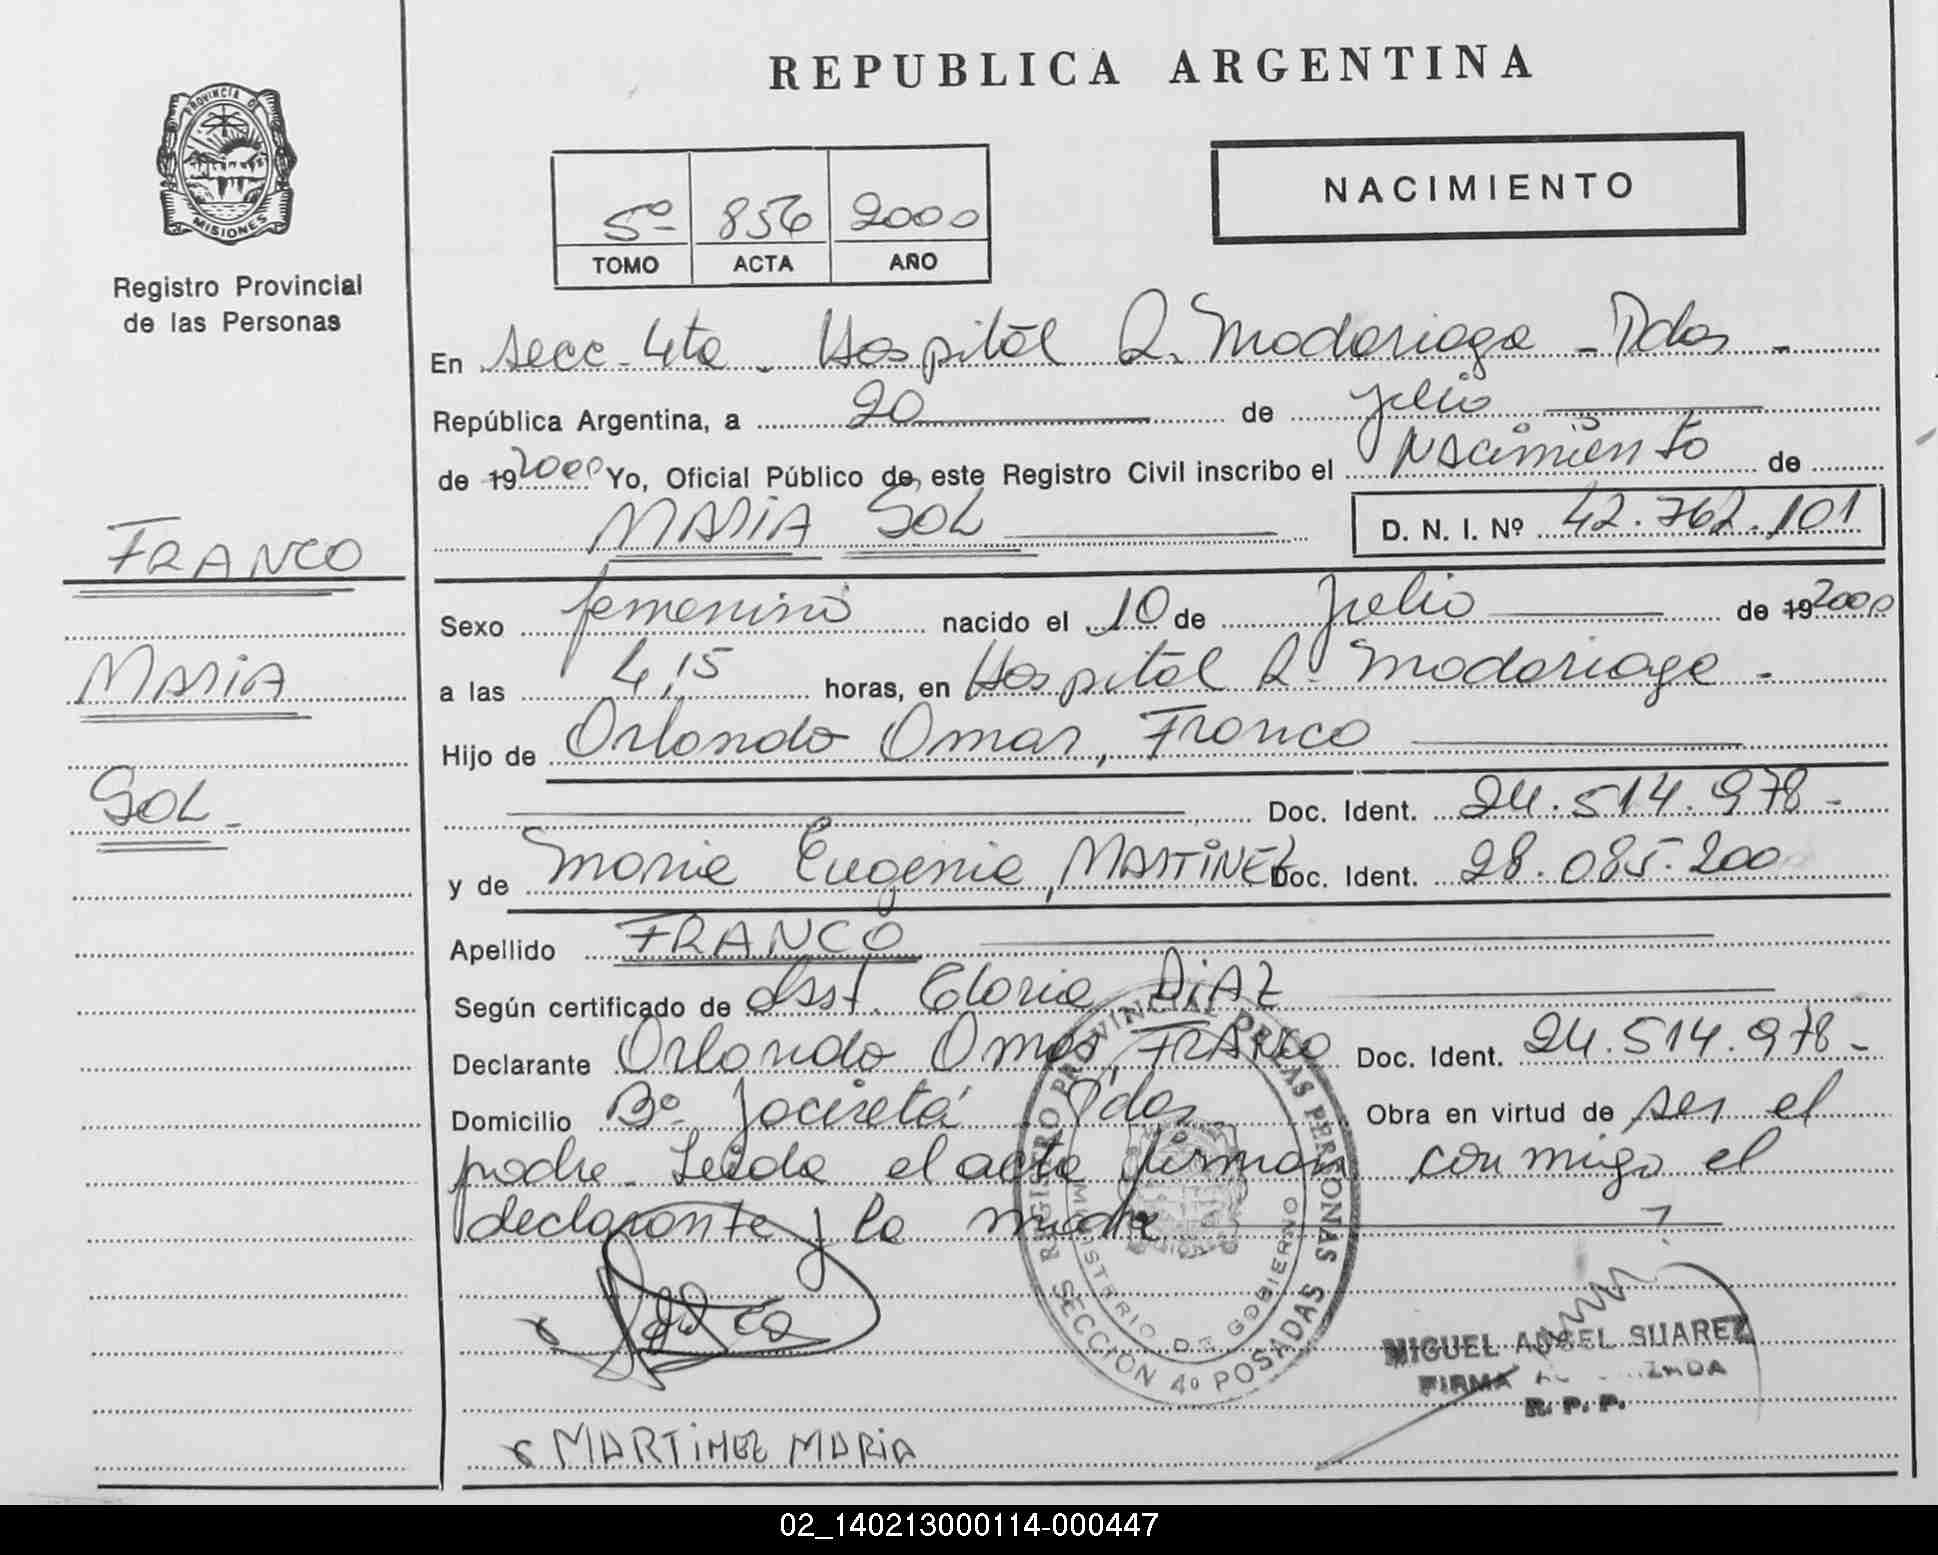 REPUBLICA ARGENTINA
PROVINCIA DE
MISIONES
Registro Provincial
de las Personas
5º 856 2000
TOMO ACTA AÑO
NACIMIENTO
En secc- 4ta - Hospital R. Madariaga - Pdas -
República Argentina, a 20 de julio
de 19 2000 Yo, Oficial Público de este Registro Civil inscribo el Nacimiento de
MARIA SOL D. N. I. Nº 42.762.101
FRANCO
MARIA
SOL -
Sexo femenino nacido el 10 de julio de 19 2000
a las 4,15 horas, en Hospital R. Madariaga -
Hijo de Orlando Omar, Franco
Doc. Ident. 24.514.978 -
y de Maria Eugenia, MARTINEZ Doc. Ident. 28.085.200
Apellido FRANCO
Según certificado de Asst. Gloria DiAZ
Declarante Orlando Omar, FRANCO Doc. Ident. 24.514.978 -
Domicilio Bº Jaciretá Pdas Obra en virtud de ser el
padre - Leida el acta firman conmigo el
declarante y la madre
REGISTRO PROVINCIAL DE LAS PERSONAS
MINISTERIO DE GOBIERNO
SECCION 4º POSADAS
MIGUEL ANGEL SUAREZ
FIRMA AUTORIZADA
R. P. P.
MARTINEZ MARIA
02_140213000114-000447